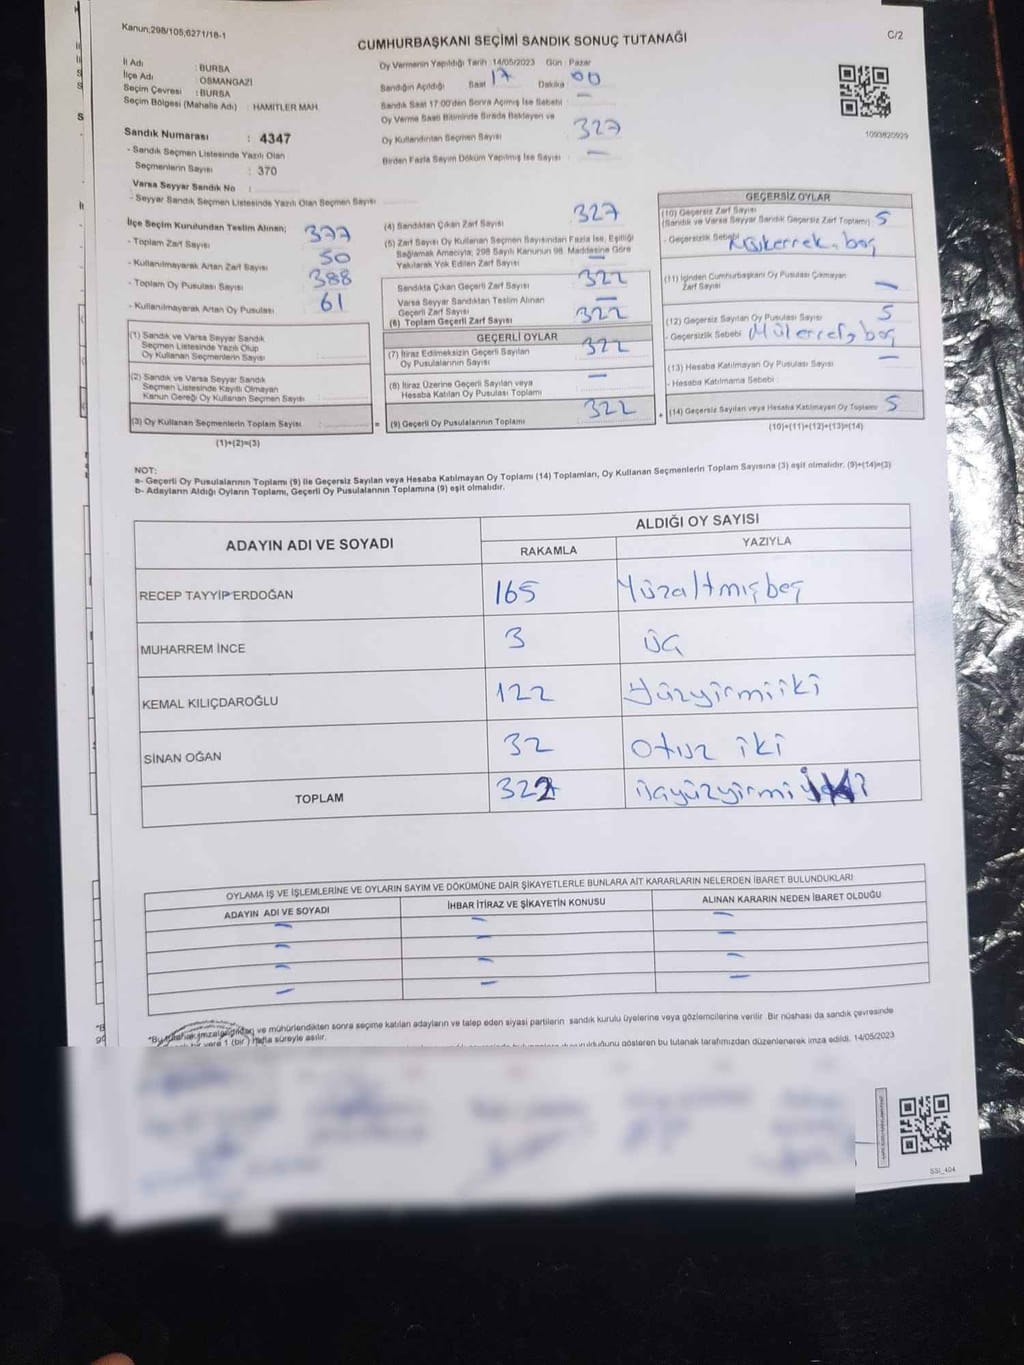 Kanun:298/105;6271/18-1
CUMHURBAŞKANI SEÇİMİ SANDIK SONUÇ TUTANAĞI
C/2
İl Adı : BURSA
İlçe Adı : OSMANGAZİ
Seçim Çevresi : BURSA
Seçim Bölgesi (Mahalle Adı) : HAMİTLER MAH.
Sandık Numarası : 4347
- Sandık Seçmen Listesinde Yazılı Olan
Seçmenlerin Sayısı : 370
Varsa Seyyar Sandık No :
- Seyyar Sandık Listesinde Yazılı Olan Seçmen Sayısı
Oy Vermenin Yapıldığı Tarih :14/05/2023 Gün : Pazar
Sandığın Açıldığı Saat 17 Dakika 00
Sandık Saat 17:00'den Sonra Açılmış İse Sebebi : —
Oy Verme Saati Bitiminde Sırada Bekleyen ve
Oy Kullandırılan Seçmen Sayısı : 327
Birden Fazla Sayım Döküm Yapılmış İse Sayısı : —
1093820929
İlçe Seçim Kurulundan Teslim Alınan;
- Toplam Zarf Sayısı 377
- Kullanılmayarak Artan Zarf Sayısı 50
- Toplam Oy Pusulası Sayısı 388
- Kullanılmayarak Artan Oy Pusulası 61
(1) Sandık ve Varsa Seyyar Sandık
Seçmen Listesinde Yazılı Olup
Oy Kullanan Seçmenlerin Sayısı :
(2) Sandık ve Varsa Seyyar Sandık
Seçmen Listesinde Kayıtlı Olmayan
Kanun Gereği Oy Kullanan Seçmen Sayısı :
(3) Oy Kullanan Seçmenlerin Toplam Sayısı :
(1)+(2)=(3)
(4) Sandıktan Çıkan Zarf Sayısı 327
(5) Zarf Sayısı Oy Kullanan Seçmen Sayısından Fazla İse, Eşitliği
Sağlamak Amacıyla; 298 Sayılı Kanunun 98. Maddesine Göre
Yakılarak Yok Edilen Zarf Sayısı —
Sandıkta Çıkan Geçerli Zarf Sayısı 322
Varsa Seyyar Sandıktan Teslim Alınan
Geçerli Zarf Sayısı —
(6) Toplam Geçerli Zarf Sayısı 322
GEÇERLİ OYLAR
(7) İtiraz Edilmeksizin Geçerli Sayılan
Oy Pusulalarının Sayısı : 322
(8) İtiraz Üzerine Geçerli Sayılan veya
Hesaba Katılan Oy Pusulası Toplamı —
(9) Geçerli Oy Pusulalarının Toplamı 322
GEÇERSİZ OYLAR
(10) Geçersiz Zarf Sayısı
(Sandık ve Varsa Seyyar Sandık Geçersiz Zarf Toplamı) 5
- Geçersizlik Sebebi boş
(11) İçinden Cumhurbaşkanı Oy Pusulası Çıkmayan
Zarf Sayısı —
(12) Geçersiz Sayılan Oy Pusulası Sayısı 5
- Geçersizlik Sebebi boş
(13) Hesaba Katılmayan Oy Pusulası Sayısı —
- Hesaba Katılmama Sebebi :
(14) Geçersiz Sayılan veya Hesaba Katılmayan Oy Toplamı 5
(10)+(11)+(12)+(13)=(14)
NOT:
a- Geçerli Oy Pusulalarının Toplamı (9) ile Geçersiz Sayılan veya Hesaba Katılmayan Oy Toplamı (14) Toplamları, Oy Kullanan Seçmenlerin Toplam Sayısına (3) eşit olmalıdır. (9)+(14)=(3)
b- Adayların Aldığı Oyların Toplamı, Geçerli Oy Pusulalarının Toplamına (9) eşit olmalıdır.
ADAYIN ADI VE SOYADI ALDIĞI OY SAYISI
RAKAMLA YAZIYLA
RECEP TAYYİP ERDOĞAN 165 Yüzaltmışbeş
MUHARREM İNCE 3 Üç
KEMAL KILIÇDAROĞLU 122 Yüzyirmiiki
SİNAN OĞAN 32 Otuz iki
TOPLAM 322 üçyüzyirmi iki
OYLAMA İŞ VE İŞLEMLERİNE VE OYLARIN SAYIM VE DÖKÜMÜNE DAİR ŞİKAYETLERLE BUNLARA AİT KARARLARIN NELERDEN İBARET BULUNDUKLARI
ADAYIN ADI VE SOYADI İHBAR İTİRAZ VE ŞİKAYETİN KONUSU ALINAN KARARIN NEDEN İBARET OLDUĞU
— — —
— — —
— — —
— — —
ve mühürlendikten sonra seçime katılan adayların ve talep eden siyasi partilerin sandık kurulu üyelerine veya gözlemcilerine verilir. Bir nüshası da sandık çevresinde
1 (bir) hafta süreyle asılır.
gösteren bu tutanak tarafımızdan düzenlenerek imza edildi. 14/05/2023
SSI_404